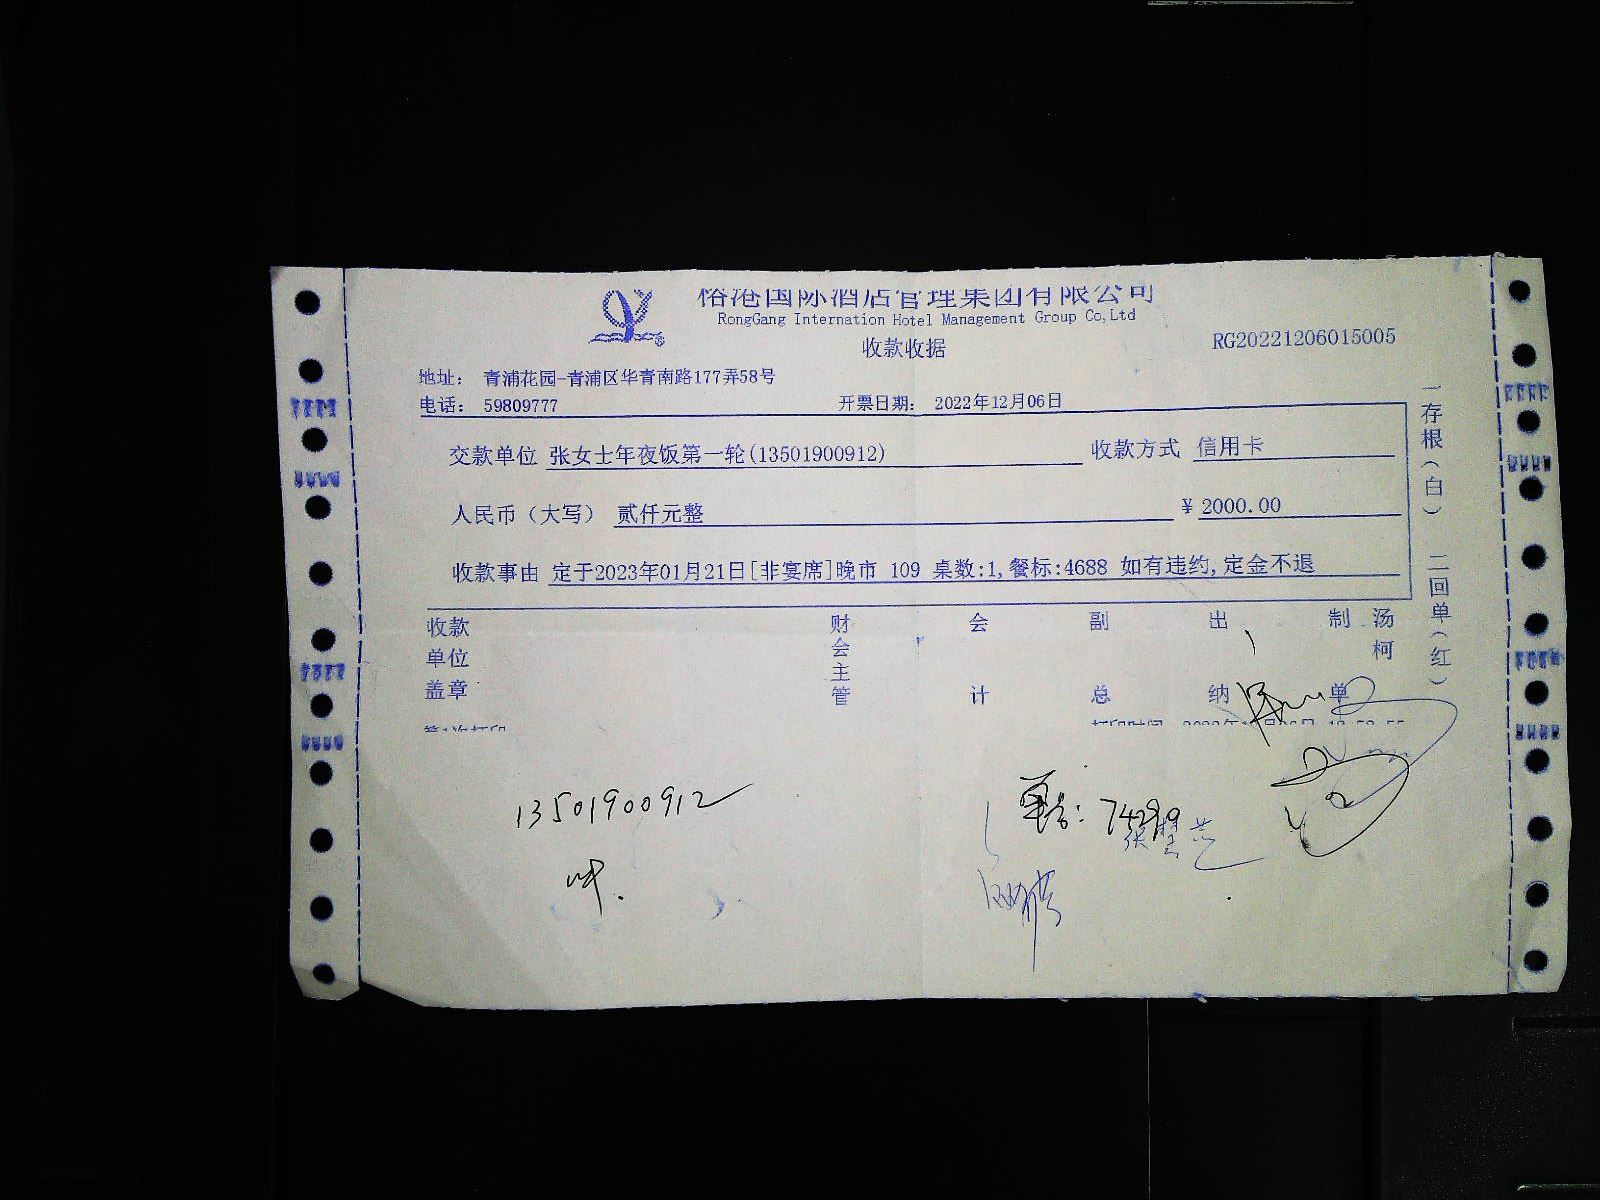 榕港国际酒店管理集团有限公司
RongGang Internation Hotel Management Group Co,Ltd
收款收据
RG20221206015005
地址： 青浦花园-青浦区华青南路177弄58号
电话： 59809777 开票日期： 2022年12月06日
交款单位 张女士年夜饭第一轮(13501900912) 收款方式 信用卡
人民币（大写） 贰仟元整 ￥2000.00
收款事由 定于2023年01月21日[非宴席]晚市 109 桌数:1,餐标:4688 如有违约,定金不退
收款单位盖章 财会主管 会计 副总 出纳 制单 汤柯
一存根（白） 二回单（红）
第1次打印 打印时间
13501900912